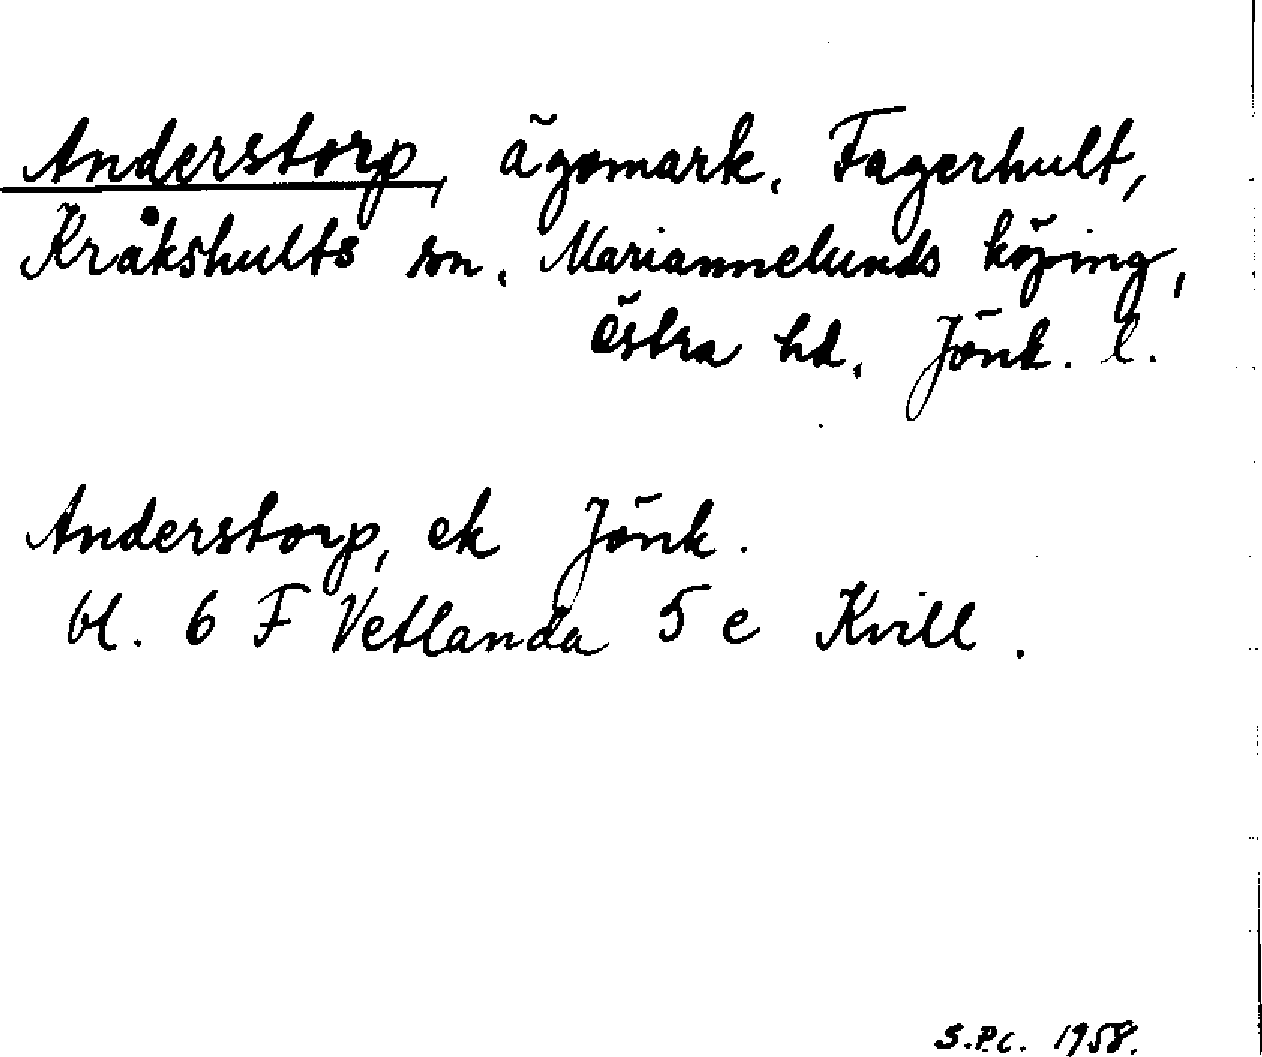 Anderstorp, ägomark. Fagerhult,
Kråkshults sn. Mariannelunds köping,
östra hd. Jönk. l.
Anderstorp, ek Jönk.
bl. 6 F Vetlanda 5 e Kvill.
S.P.C. 1958.